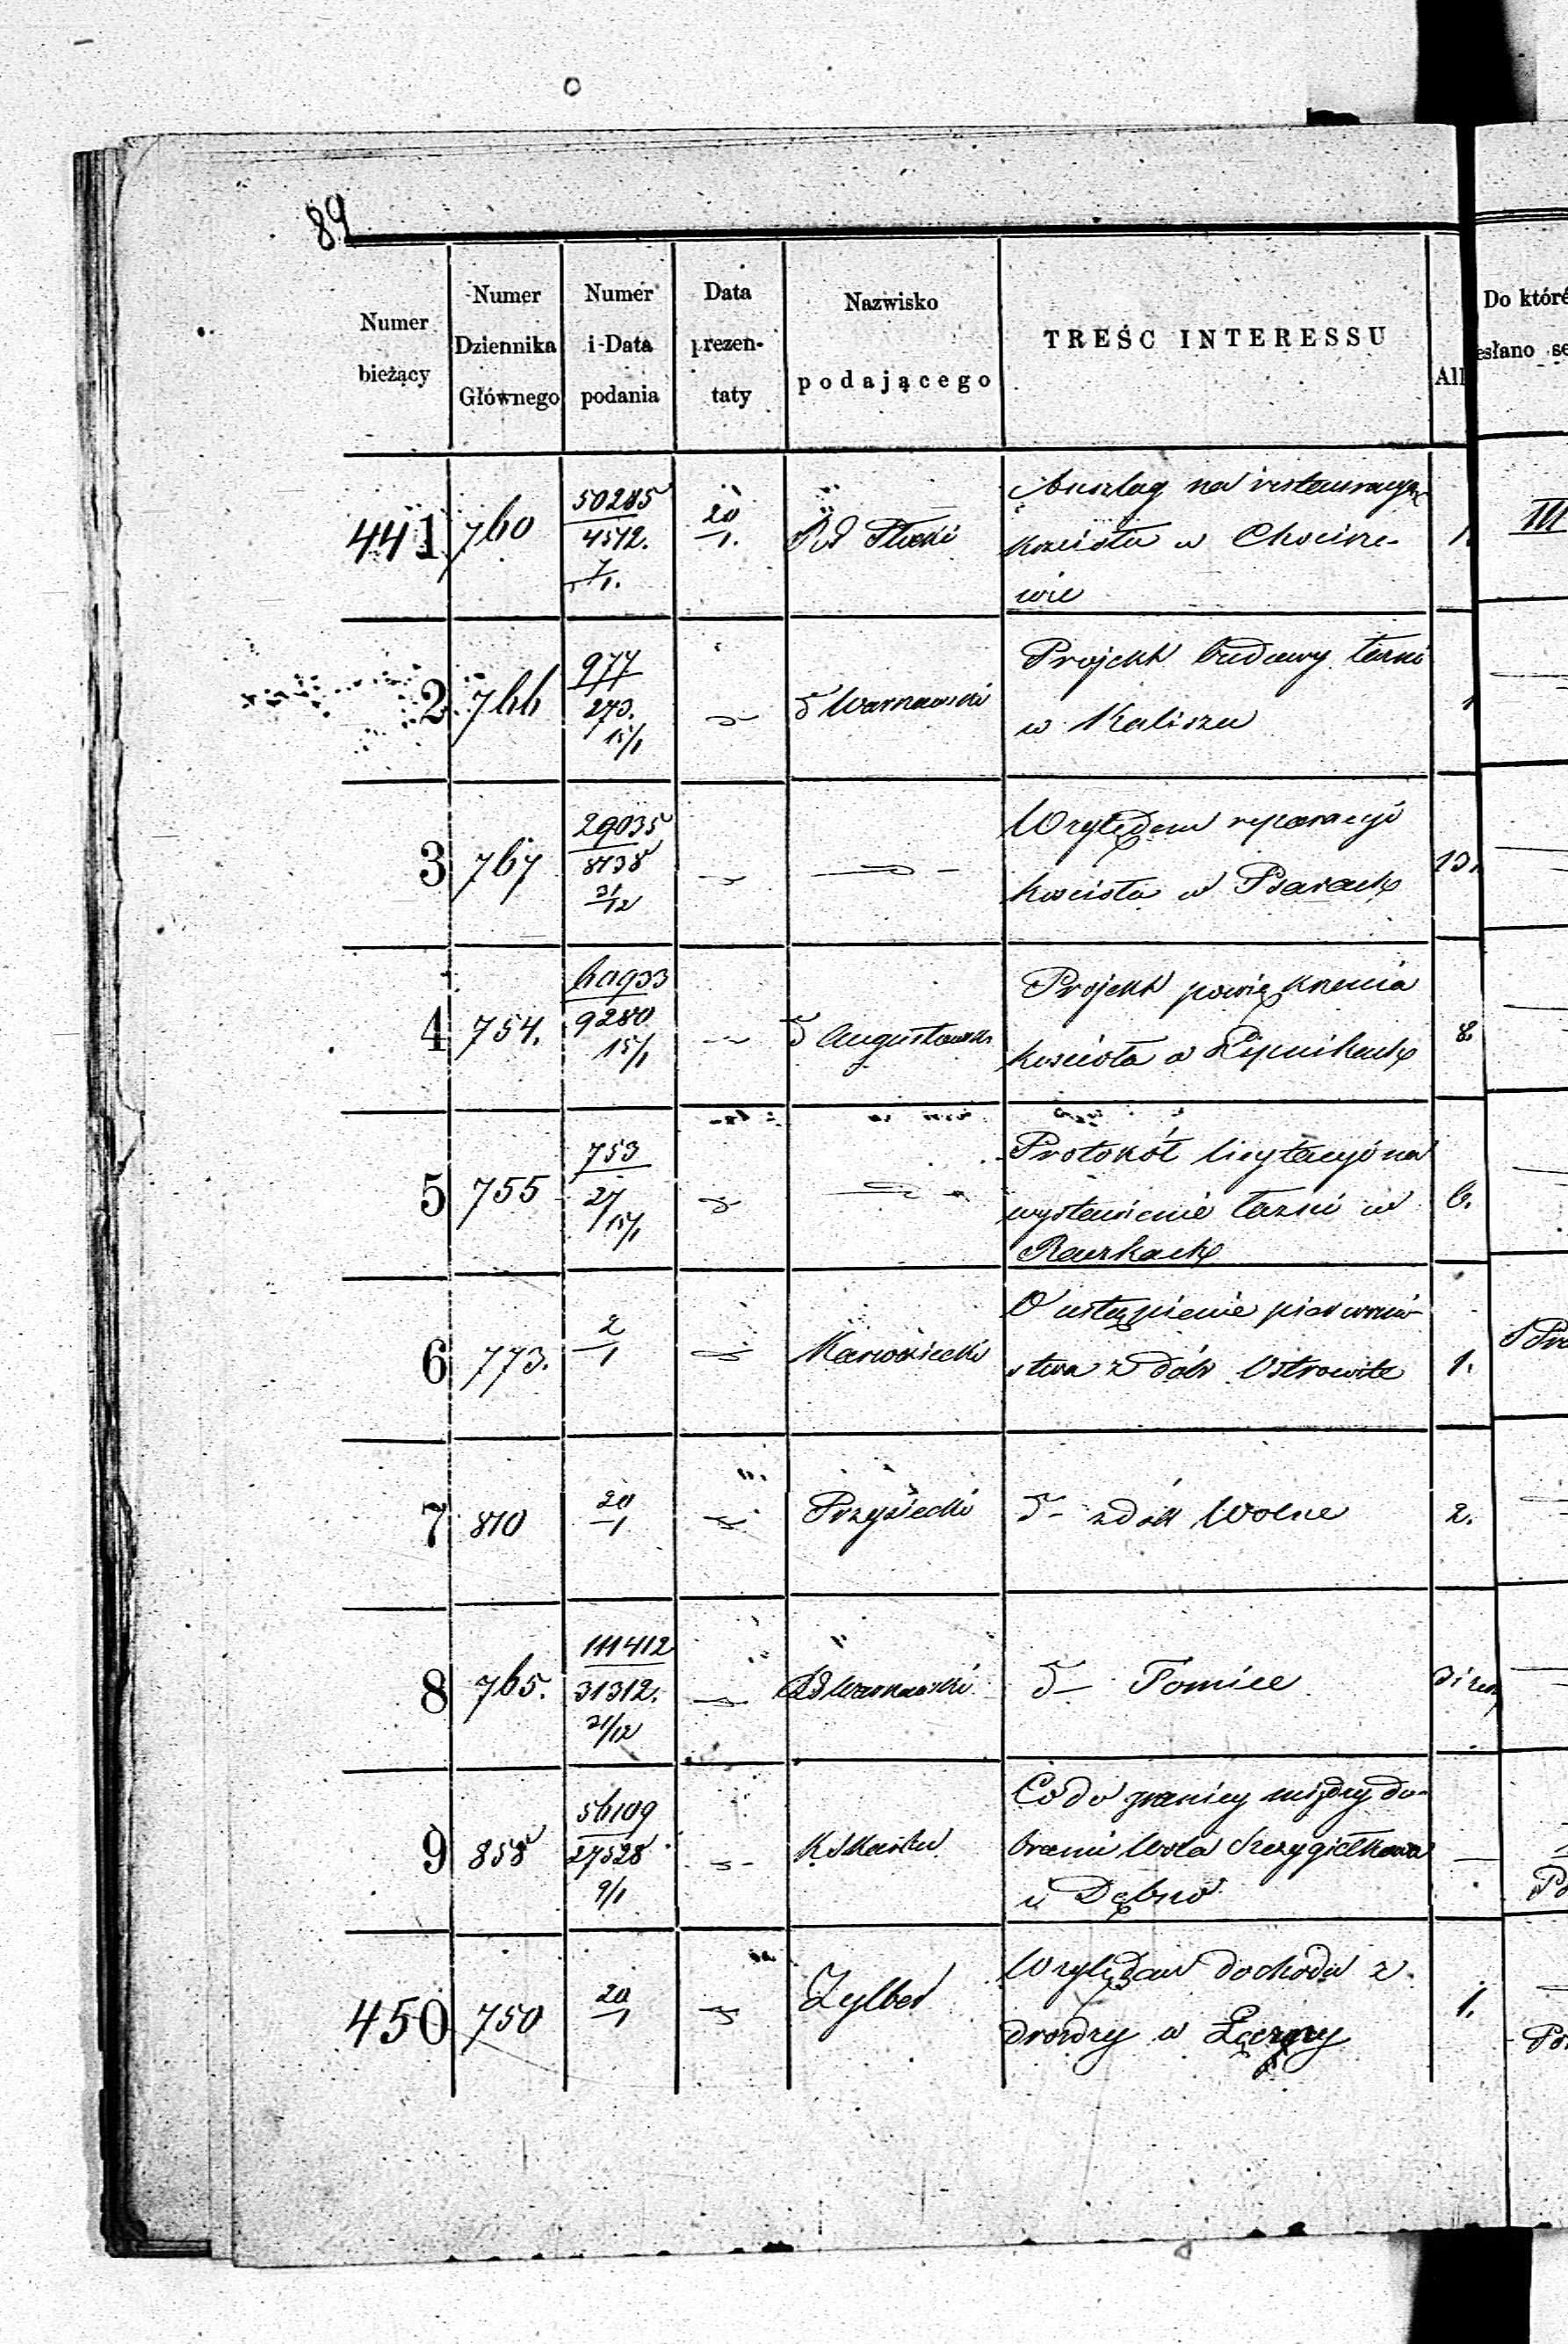 89
Numer bieżący
Numer Dziennika Głównego
Numer i Data podania
Data prezen-taty
Nazwisko podającego
TREŚĆ INTERESSU
All
Do któré
esłano se
441 760 50285/4572. 7/1. 20/1. Rd Płocki
Anszlag na restauracyą
kościoła w Chocisze-
wie
1.
III
2 766 977/273. 15/1 Warszawski
Projekt budowy łazni
w Kaliszu
1
3 767 29035/8738 31/12
Względem reparacyi
kościoła w Psarach
13.
4 754. 60933/9280 15/1 Augustowski
Projekt powiększenia
kościoła w Lipnikach
8
5 755 753/27 15/1
Protokół licytacyi na
wystawienie łazni w
Raczkach
6.
6 773. 2/1
O ustąpienie pierwszeń-
stwa z dóbr Ostrowite
1.
7 810 20/1 Przysiecki
z dóbr Wolne
2.
8 765. 111412/31312. 31/12 Rd Warszawski
Tomice
9 858 56109/27528 9/1
Co do granicy między do-
brami Wola Szczygiełkowa
i Dębno
Po
450 750 20/1 Zylber
Względem dochodu z
drożdzy w Łęczycy
1.
Po